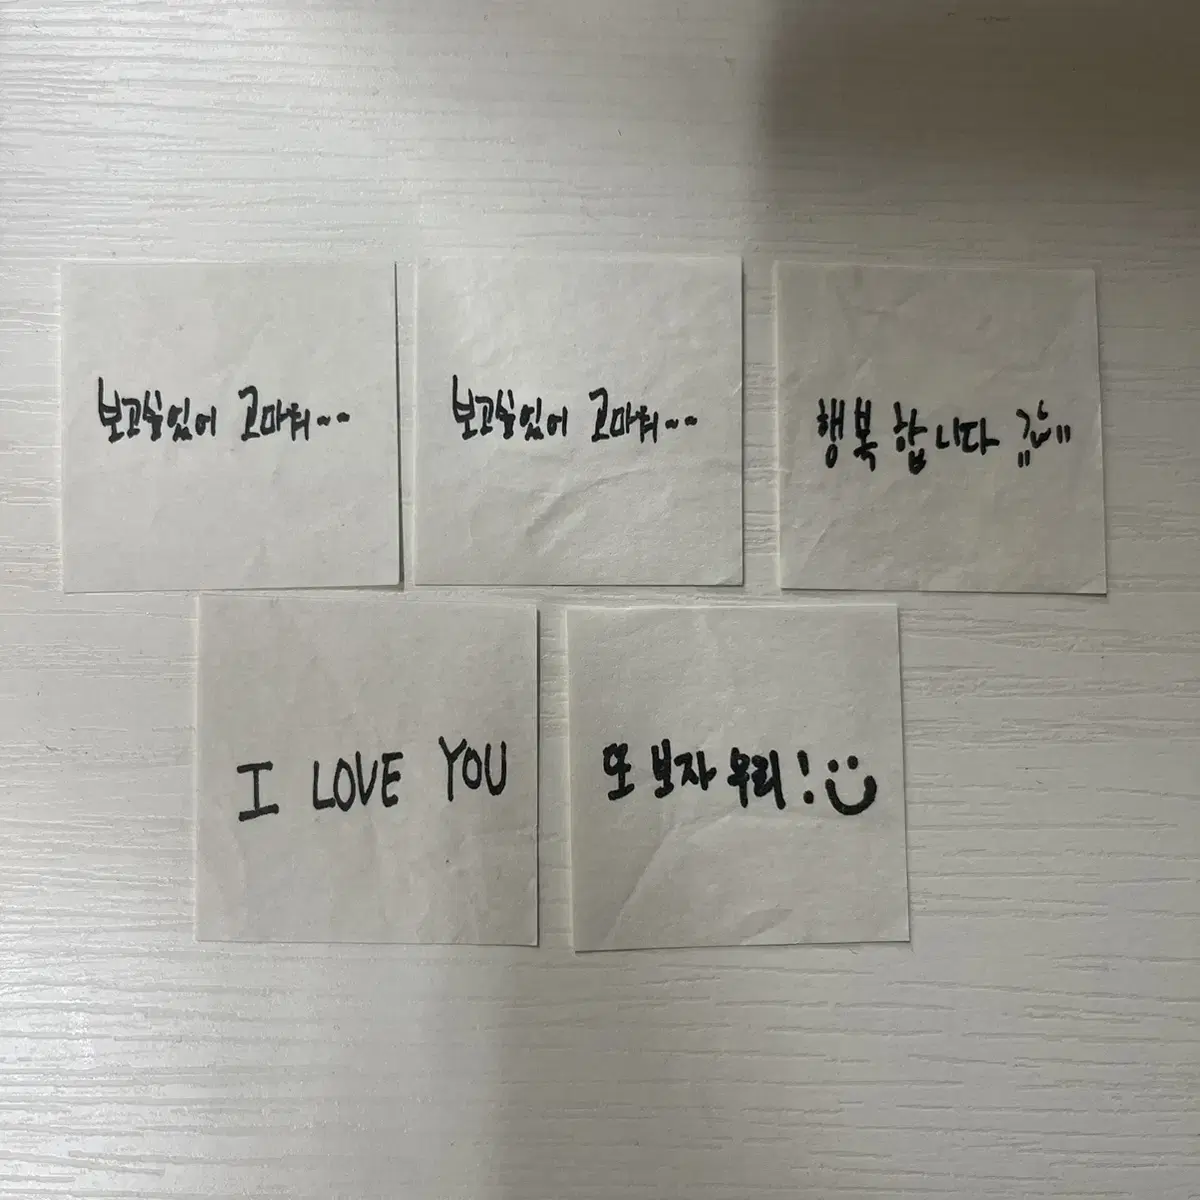 보고싶었어 고마워~~
보고싶었어 고마워~~
행복합니다
I LOVE YOU
또 보자 우리!